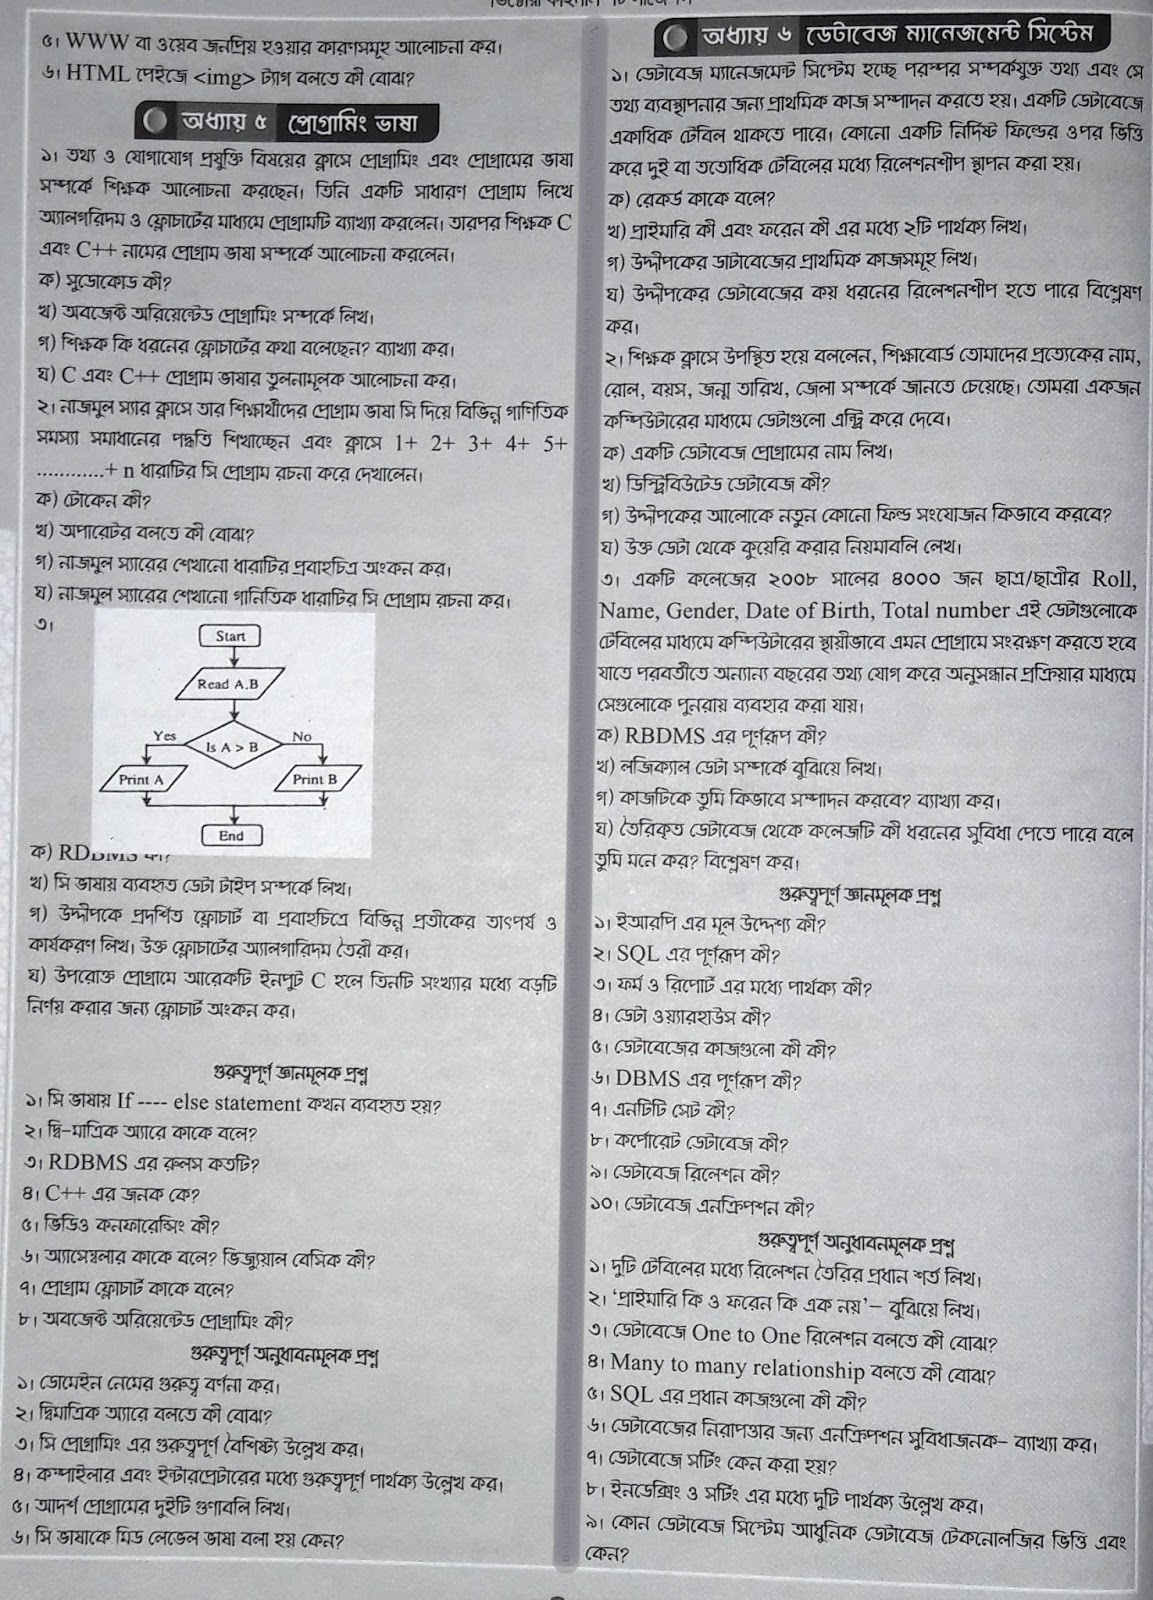 ৫। WWW বা ওয়েব জনপ্রিয় হওয়ার কারণসমূহ আলোচনা কর।
৬। HTML পেইজে <img> ট্যাগ বলতে কী বোঝ?
অধ্যায় ৫ প্রোগ্রামিং ভাষা
১। তথ্য ও যোগাযোগ প্রযুক্তি বিষয়ের ক্লাসে প্রোগ্রামিং এবং প্রোগ্রামের ভাষা
সম্পর্কে শিক্ষক আলোচনা করছেন। তিনি একটি সাধারণ প্রোগ্রাম লিখে
অ্যালগরিদম ও ফ্লোচার্টের মাধ্যমে প্রোগ্রামটি ব্যাখ্যা করলেন। তারপর শিক্ষক C
এবং C++ নামের প্রোগ্রাম ভাষা সম্পর্কে আলোচনা করলেন।
ক) সুডোকোড কী?
খ) অবজেক্ট অরিয়েন্টেড প্রোগ্রামিং সম্পর্কে লিখ।
গ) শিক্ষক কি ধরনের ফ্লোচার্টের কথা বলেছেন? ব্যাখ্যা কর।
ঘ) C এবং C++ প্রোগ্রাম ভাষার তুলনামূলক আলোচনা কর।
২। নাজমুল স্যার ক্লাসে তার শিক্ষার্থীদের প্রোগ্রাম ভাষা সি দিয়ে বিভিন্ন গাণিতিক
সমস্যা সমাধানের পদ্ধতি শিখাচ্ছেন এবং ক্লাসে 1+ 2+ 3+ 4+ 5+
............+ n ধারাটির সি প্রোগ্রাম রচনা করে দেখালেন।
ক) টোকেন কী?
খ) অপারেটর বলতে কী বোঝ?
গ) নাজমুল স্যারের শেখানো ধারাটির প্রবাহচিত্র অংকন কর।
ঘ) নাজমুল স্যারের শেখানো গানিতিক ধারাটির সি প্রোগ্রাম রচনা কর।
৩।
Start
Read A.B
Yes
Is A > B
No
Print A
Print B
End
ক) RDBMS কী?
খ) সি ভাষায় ব্যবহৃত ডেটা টাইপ সম্পর্কে লিখ।
গ) উদ্দীপকে প্রদর্শিত ফ্লোচার্ট বা প্রবাহচিত্রে বিভিন্ন প্রতীকের তাৎপর্য ও
কার্যকরণ লিখ। উক্ত ফ্লোচার্টের অ্যালগারিদম তৈরী কর।
ঘ) উপরোক্ত প্রোগ্রামে আরেকটি ইনপুট C হলে তিনটি সংখ্যার মধ্যে বড়টি
নির্ণয় করার জন্য ফ্লোচার্ট অংকন কর।
গুরুত্বপূর্ণ জ্ঞানমূলক প্রশ্ন
১। সি ভাষায় If ---- else statement কখন ব্যবহৃত হয়?
২। দ্বি-মাত্রিক অ্যারে কাকে বলে?
৩। RDBMS এর রুলস কতটি?
৪। C++ এর জনক কে?
৫। ভিডিও কনফারেন্সিং কী?
৬। অ্যাসেম্বলার কাকে বলে? ভিজ্যুয়াল বেসিক কী?
৭। প্রোগ্রাম ফ্লোচার্ট কাকে বলে?
৮। অবজেক্ট অরিয়েন্টেড প্রোগ্রামিং কী?
গুরুত্বপূর্ণ অনুধাবনমূলক প্রশ্ন
১। ডোমেইন নেমের গুরুত্ব বর্ণনা কর।
২। দ্বিমাত্রিক অ্যারে বলতে কী বোঝ?
৩। সি প্রোগ্রামিং এর গুরুত্বপূর্ণ বৈশিষ্ট্য উল্লেখ কর।
৪। কম্পাইলার এবং ইন্টারপ্রেটারের মধ্যে গুরুত্বপূর্ণ পার্থক্য উল্লেখ কর।
৫। আদর্শ প্রোগ্রামের দুইটি গুণাবলি লিখ।
৬। সি ভাষাকে মিড লেভেল ভাষা বলা হয় কেন?
অধ্যায় ৬ ডেটাবেজ ম্যানেজমেন্ট সিস্টেম
১। ডেটাবেজ ম্যানেজমেন্ট সিস্টেম হচ্ছে পরস্পর সম্পর্কযুক্ত তথ্য এবং সে
তথ্য ব্যবস্থাপনার জন্য প্রাথমিক কাজ সম্পাদন করতে হয়। একটি ডেটাবেজে
একাধিক টেবিল থাকতে পারে। কোনো একটি নির্দিষ্ট ফিল্ডের ওপর ভিত্তি
করে দুই বা ততোধিক টেবিলের মধ্যে রিলেশনশীপ স্থাপন করা হয়।
ক) রেকর্ড কাকে বলে?
খ) প্রাইমারি কী এবং ফরেন কী এর মধ্যে ২টি পার্থক্য লিখ।
গ) উদ্দীপকের ডাটাবেজের প্রাথমিক কাজসমূহ লিখ।
ঘ) উদ্দীপকের ডেটাবেজের কয় ধরনের রিলেশনশীপ হতে পারে বিশ্লেষণ
কর।
২। শিক্ষক ক্লাসে উপস্থিত হয়ে বললেন, শিক্ষাবোর্ড তোমাদের প্রত্যেকের নাম,
রোল, বয়স, জন্ম তারিখ, জেলা সম্পর্কে জানতে চেয়েছে। তোমরা একজন
কম্পিউটারের মাধ্যমে ডেটাগুলো এন্ট্রি করে দেবে।
ক) একটি ডেটাবেজ প্রোগ্রামের নাম লিখ।
খ) ডিস্ট্রিবিউটেড ডেটাবেজ কী?
গ) উদ্দীপকের আলোকে নতুন কোনো ফিল্ড সংযোজন কিভাবে করবে?
ঘ) উক্ত ডেটা থেকে কুয়েরি করার নিয়মাবলি লেখ।
৩। একটি কলেজের ২০০৮ সালের ৪০০০ জন ছাত্র/ছাত্রীর Roll,
Name, Gender, Date of Birth, Total number এই ডেটাগুলোকে
টেবিলের মাধ্যমে কম্পিউটারের স্থায়ীভাবে এমন প্রোগ্রামে সংরক্ষণ করতে হবে
যাতে পরবর্তীতে অন্যান্য বছরের তথ্য যোগ করে অনুসন্ধান প্রক্রিয়ার মাধ্যমে
সেগুলোকে পুনরায় ব্যবহার করা যায়।
ক) RBDMS এর পূর্ণরূপ কী?
খ) লজিক্যাল ডেটা সম্পর্কে বুঝিয়ে লিখ।
গ) কাজটিকে তুমি কিভাবে সম্পাদন করবে? ব্যাখ্যা কর।
ঘ) তৈরিকৃত ডেটাবেজ থেকে কলেজটি কী ধরনের সুবিধা পেতে পারে বলে
তুমি মনে কর? বিশ্লেষণ কর।
গুরুত্বপূর্ণ জ্ঞানমূলক প্রশ্ন
১। ইআরপি এর মূল উদ্দেশ্য কী?
২। SQL এর পূর্ণরূপ কী?
৩। ফর্ম ও রিপোর্ট এর মধ্যে পার্থক্য কী?
৪। ডেটা ওয়্যারহাউস কী?
৫। ডেটাবেজের কাজগুলো কী কী?
৬। DBMS এর পূর্ণরূপ কী?
৭। এনটিটি সেট কী?
৮। কর্পোরেট ডেটাবেজ কী?
৯। ডেটাবেজ রিলেশন কী?
১০। ডেটাবেজ এনক্রিপশন কী?
গুরুত্বপূর্ণ অনুধাবনমূলক প্রশ্ন
১। দুটি টেবিলের মধ্যে রিলেশন তৈরির প্রধান শর্ত লিখ।
২। ‘প্রাইমারি কি ও ফরেন কি এক নয়’– বুঝিয়ে লিখ।
৩। ডেটাবেজে One to One রিলেশন বলতে কী বোঝ?
৪। Many to many relationship বলতে কী বোঝ?
৫। SQL এর প্রধান কাজগুলো কী কী?
৬। ডেটাবেজের নিরাপত্তার জন্য এনক্রিপশন সুবিধাজনক– ব্যাখ্যা কর।
৭। ডেটাবেজে সর্টিং কেন করা হয়?
৮। ইনডেক্সিং ও সর্টিং এর মধ্যে দুটি পার্থক্য উল্লেখ কর।
৯। কোন ডেটাবেজ সিস্টেম আধুনিক ডেটাবেজ টেকনোলজির ভিত্তি এবং
কেন?